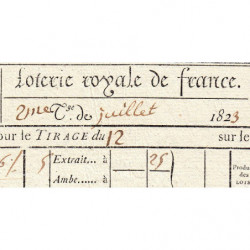 Loterie royale de france.
2me T.ge de juillet 1823
our le TIRAGE du 12 sur le
5 Extrait.... à 25
Ambe..... à